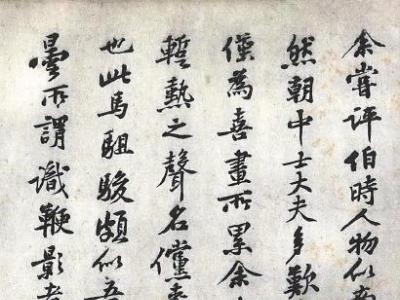 余嘗评伯時人物似
然朝中士大夫多歎
僅為喜畫所累余
暫熱之聲名儻
也此馬駔駿頗似吾
曇所謂識鞭影者